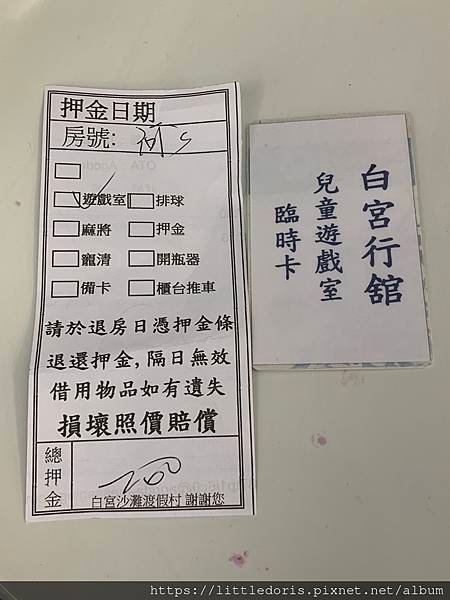 押金日期
房號:
遊戲室 排球
麻將 押金
寵清 開瓶器
備卡 櫃台推車
請於退房日憑押金條
退還押金,隔日無效
借用物品如有遺失
損壞照價賠償
總押金 200
白宮沙灘渡假村 謝謝您
白宮行舘
兒童遊戲室
臨時卡
https://littledoris.pixnet.net/album